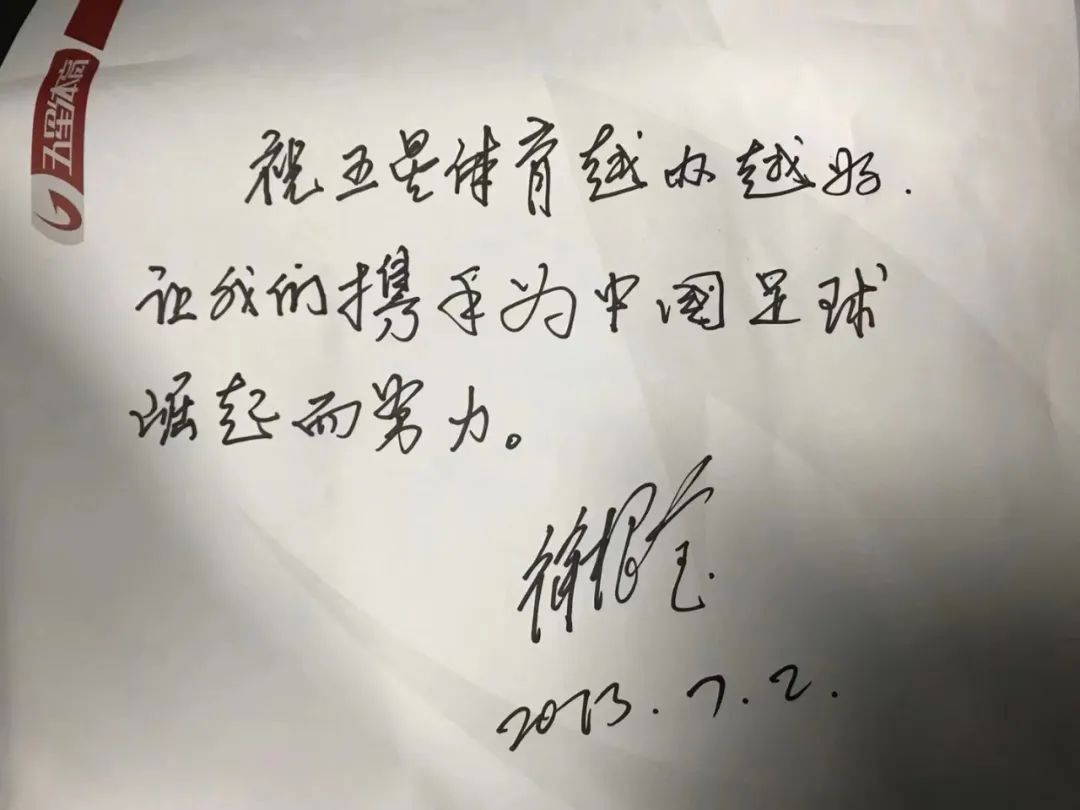 五星体育
祝五星体育越办越好.
让我们携手为中国足球
崛起而努力。
徐根宝
2013.7.2.